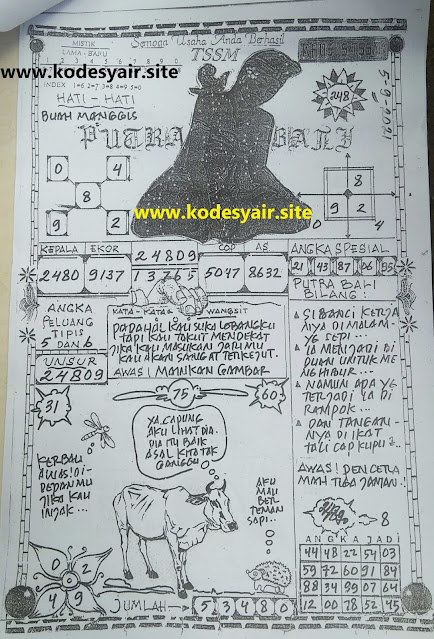 MISTIK
LAMA - BARU
Semoga Usaha Anda Berhasil
TSSM
www.kodesyair.site
1 2 3 4 5 6 7 8 9 0
INDEX 1=6 2=7 3=8 4=9 5=0
HATI - HATI
BUAH MANGGIS
PUTRA BALI
248
5-9-2021
0 4
8
9 2
8
9 2
0 4
www.kodesyair.site
KEPALA EKOR
2480 9137
24809
13765
COP AS
5047 8632
ANGKA SPESIAL
21 43 87 06 95
ANGKA
PELUANG
TIPIS
5 DAN 6
UNSUR
24809
KATA - KATA WANGSIT
PADAHAL KAU SUKA LOBANGKU
TAPI KAU TAKUT MENDEKAT
JIKA KAU MASUKAN JARIMU
KAU AKAN SANGAT TERKEJUT.
AWAS! MAINKAN GAMBAR
PUTRA BALI
BILANG :
SI BANCI KERJA
NYA DI MALAM
YG SEPI...
IA MENJADI BI
DUAN UNTUK ME
NGHIBUR...
NAMUN ADA YG
TERJADI IA DI
RAMPOK...
DAN TANGAN-
NYA DI IKAT
TALI
31
75
60
YA.CAPUNG
AKU LIHAT DIA.
DIA ITU BAIK
ASAL KITA TAK
GANGGU
KERBAU
AWAS! DI-
DEPANMU
JIKA KAU
INJAK...
AKU
MAU
BER
TEMAN
SAPI...
AWAS! PENCETA
MAH TUA JAMAN..!
8
ANGKA JADI
44 48 22 54 03
59 72 60 91 84
88 34 99 07 64
12 00 78 52 45
0 2
4 9
JUMLAH
5 3 4 8 0